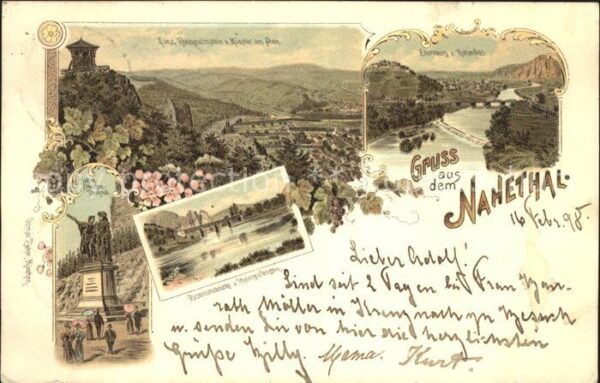 Gans, Rheingrafenstein u. Münster am Stein
Ebernburg u. Rotenfels
Gruss
aus
dem
Nahethal
16 Febr. 98.
Eisenbahnbrücke u. Rheingrafenstein
Lieber Adolf!
Sind seit 2 Tagen bei Frau
rath Möller in Kreuznach zu Besuch
u. senden Dir von hier die herzlichsten
Grüße Willy. Mama. Kurt.